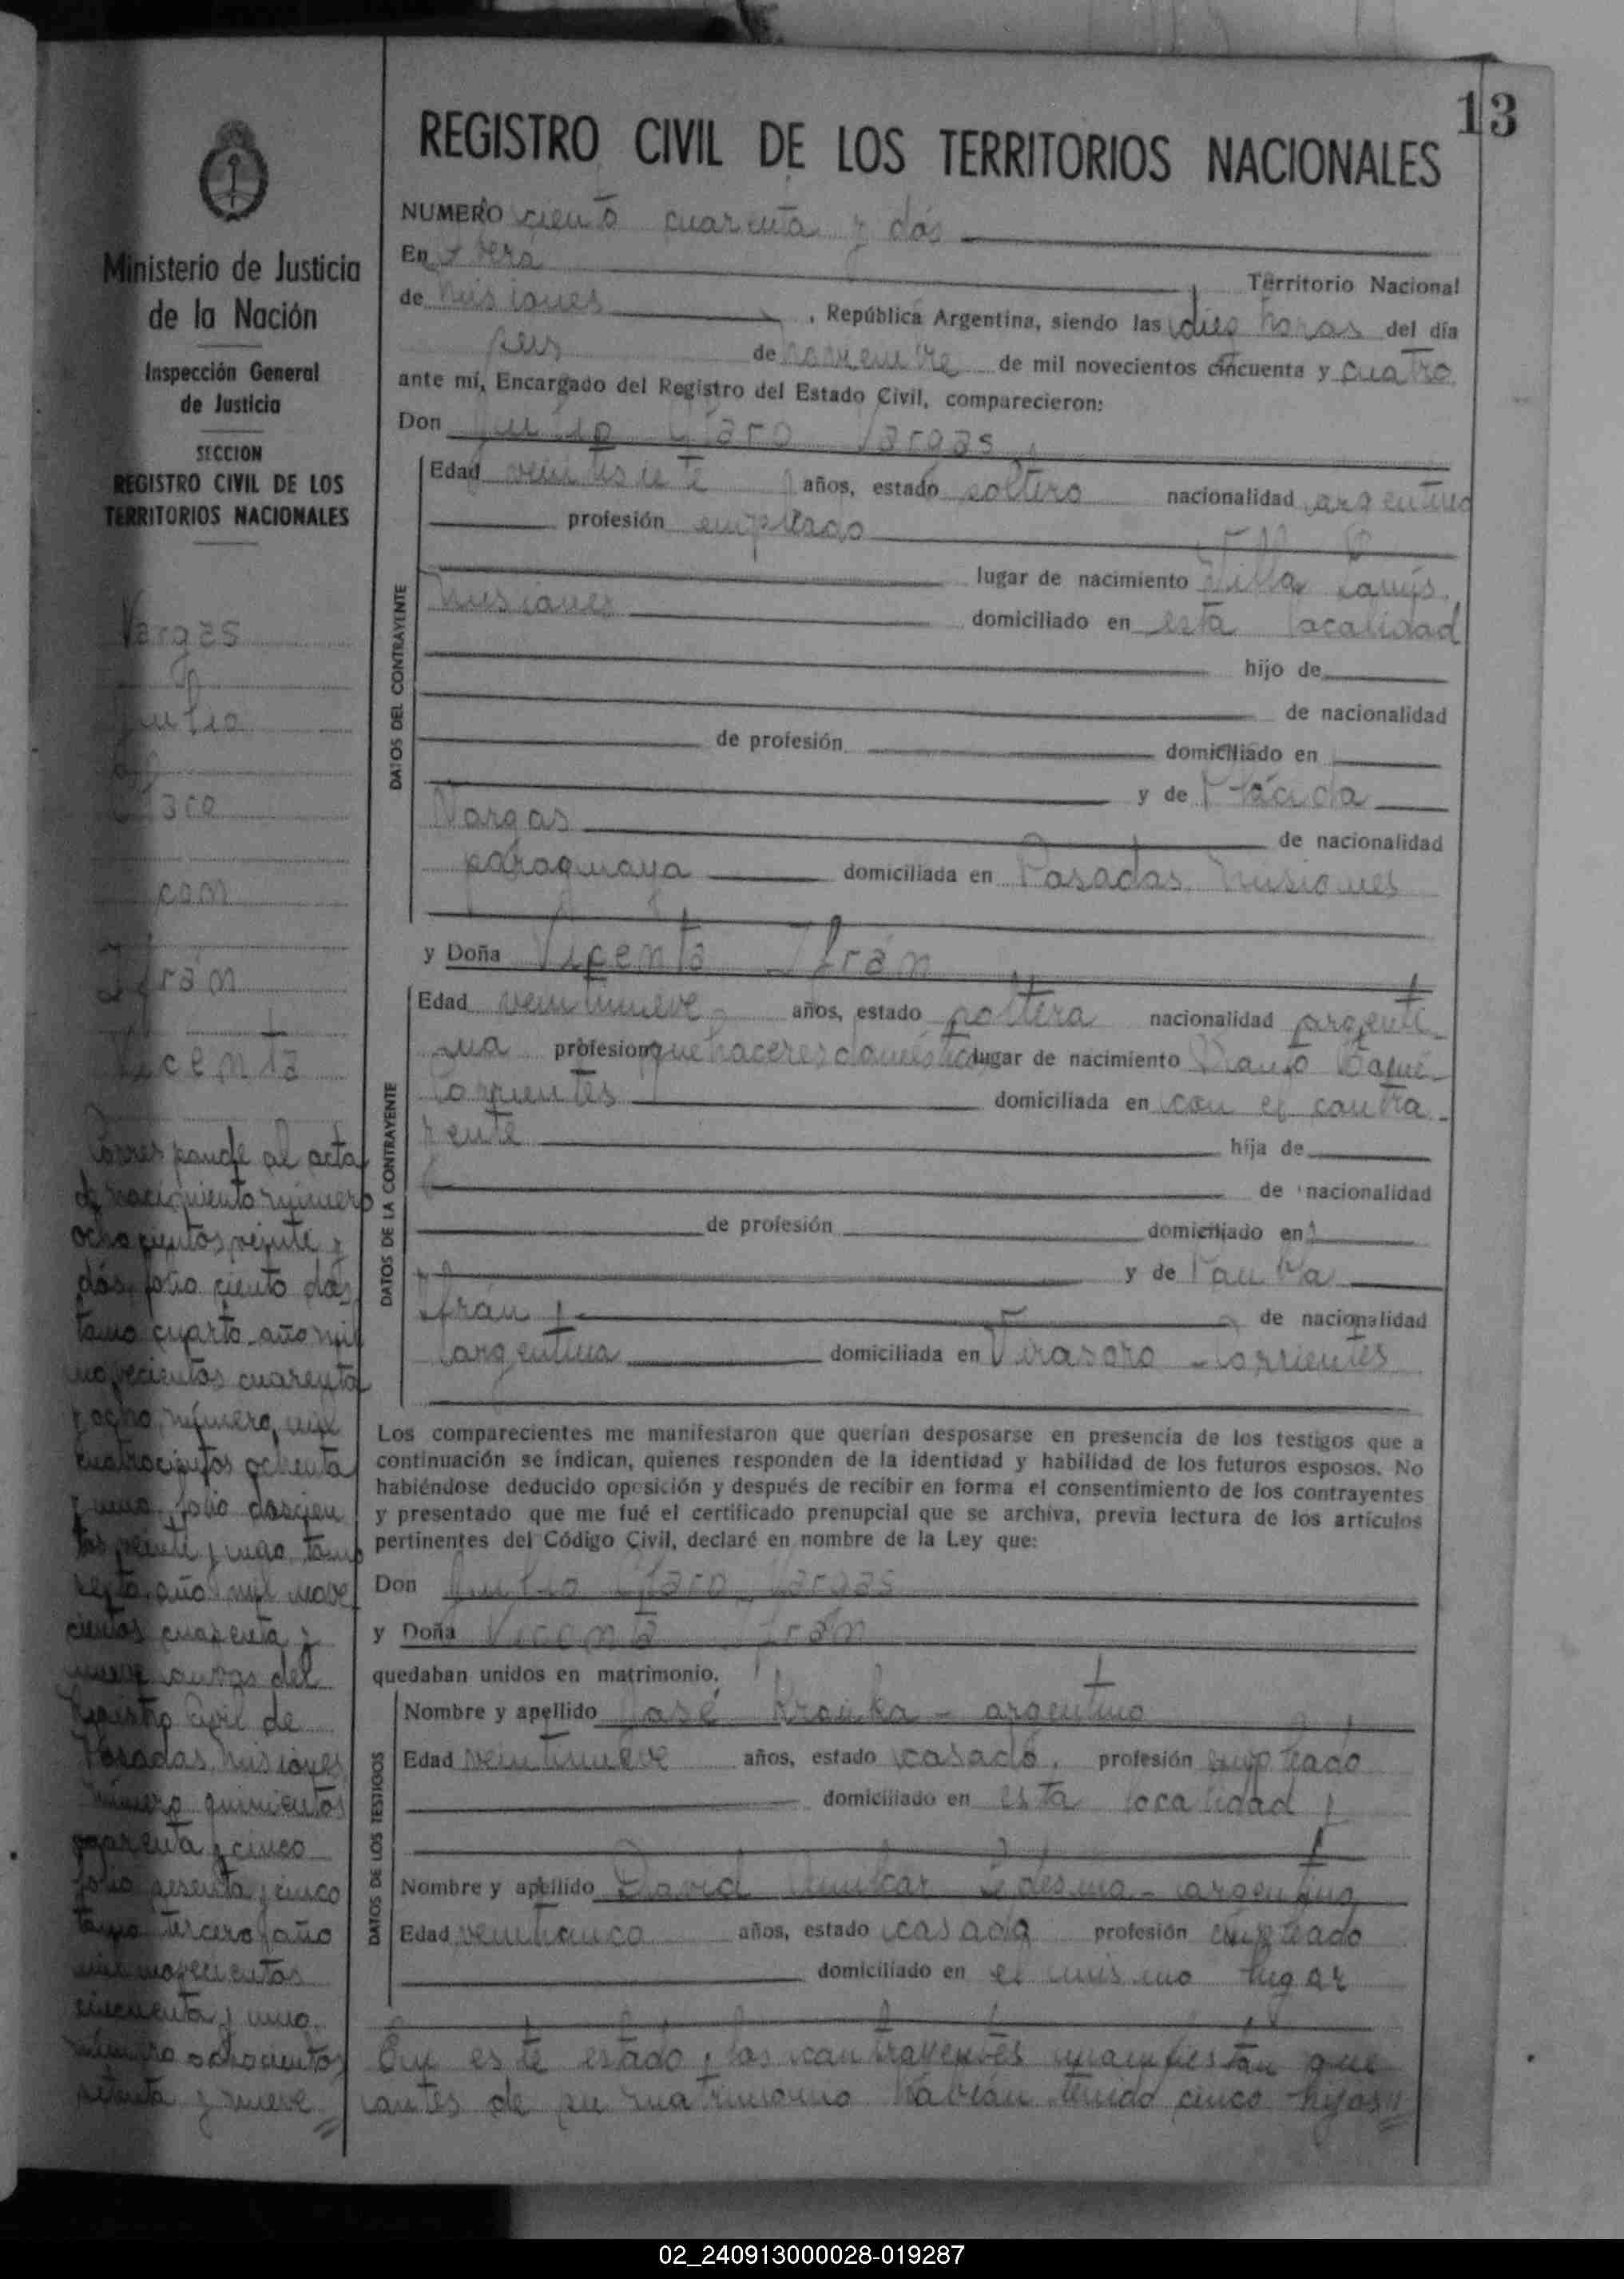 13
REGISTRO CIVIL DE LOS TERRITORIOS NACIONALES
Ministerio de Justicia
de la Nación
Inspección General
de Justicia
SECCION
REGISTRO CIVIL DE LOS
TERRITORIOS NACIONALES
Vargas
Julio
con
Ifrán
Vicenta
Corresponde al acta
de nacimiento número
ochocientos veinte y
dós, folio ciento dos
tomo cuarto año mil
novecientos cuarenta
y ocho, número, mil
cuatrocientos ochenta
y uno, folio doscien
tos veinte y uno, tomo
sexto, año mil nove
cientos cuarenta y
nueve ambas del
Registro Civil de
Posadas, Misiones,
número quinientos
cuarenta y cinco
folio sesenta y cinco
tomo tercero año
mil novecientos
cincuenta y uno.
número ochocientos
setenta y nueve
NUMERO ciento cuarenta y dós
En Territorio Nacional
de Misiones, República Argentina, siendo las diez horas del día
seis de noviembre de mil novecientos cincuenta y cuatro
ante mí, Encargado del Registro del Estado Civil, comparecieron:
Don Julio Vargas
DATOS DEL CONTRAYENTE
Edad veintisiete años, estado soltero nacionalidad argentino
profesión empleado
lugar de nacimiento Villa Lanús
Misiones domiciliado en esta localidad
hijo de
de nacionalidad
de profesión domiciliado en
y de Plácida
Vargas de nacionalidad
paraguaya domiciliada en Posadas Misiones
y Doña Vicenta Ifrán
DATOS DE LA CONTRAYENTE
Edad veintinueve años, estado soltera nacionalidad argenti-
na profesion quehaceres domésticos lugar de nacimiento
Corrientes domiciliada en con el contra-
yente hija de
de nacionalidad
de profesión domiciliado en
y de Paula
Ifrán de nacionalidad
argentina domiciliada en Virasoro - Corrientes
Los comparecientes me manifestaron que querían desposarse en presencia de los testigos que a
continuación se indican, quienes responden de la identidad y habilidad de los futuros esposos. No
habiéndose deducido oposición y después de recibir en forma el consentimiento de los contrayentes
y presentado que me fué el certificado prenupcial que se archiva, previa lectura de los artículos
pertinentes del Código Civil, declaré en nombre de la Ley que:
Don Julio Vargas
y Doña Vicenta Ifrán
quedaban unidos en matrimonio.
DATOS DE LOS TESTIGOS
Nombre y apellido José - argentino
Edad veintinueve años, estado casado, profesión empleado
domiciliado en esta localidad
Nombre y apellido David Amilcar Ledesma - argentino
Edad veinticinco años, estado casado profesión empleado
domiciliado en el mismo lugar
En este estado, los contrayentes manifiestan que
antes de su matrimonio habían tenido cinco hijos
02_240913000028-019287